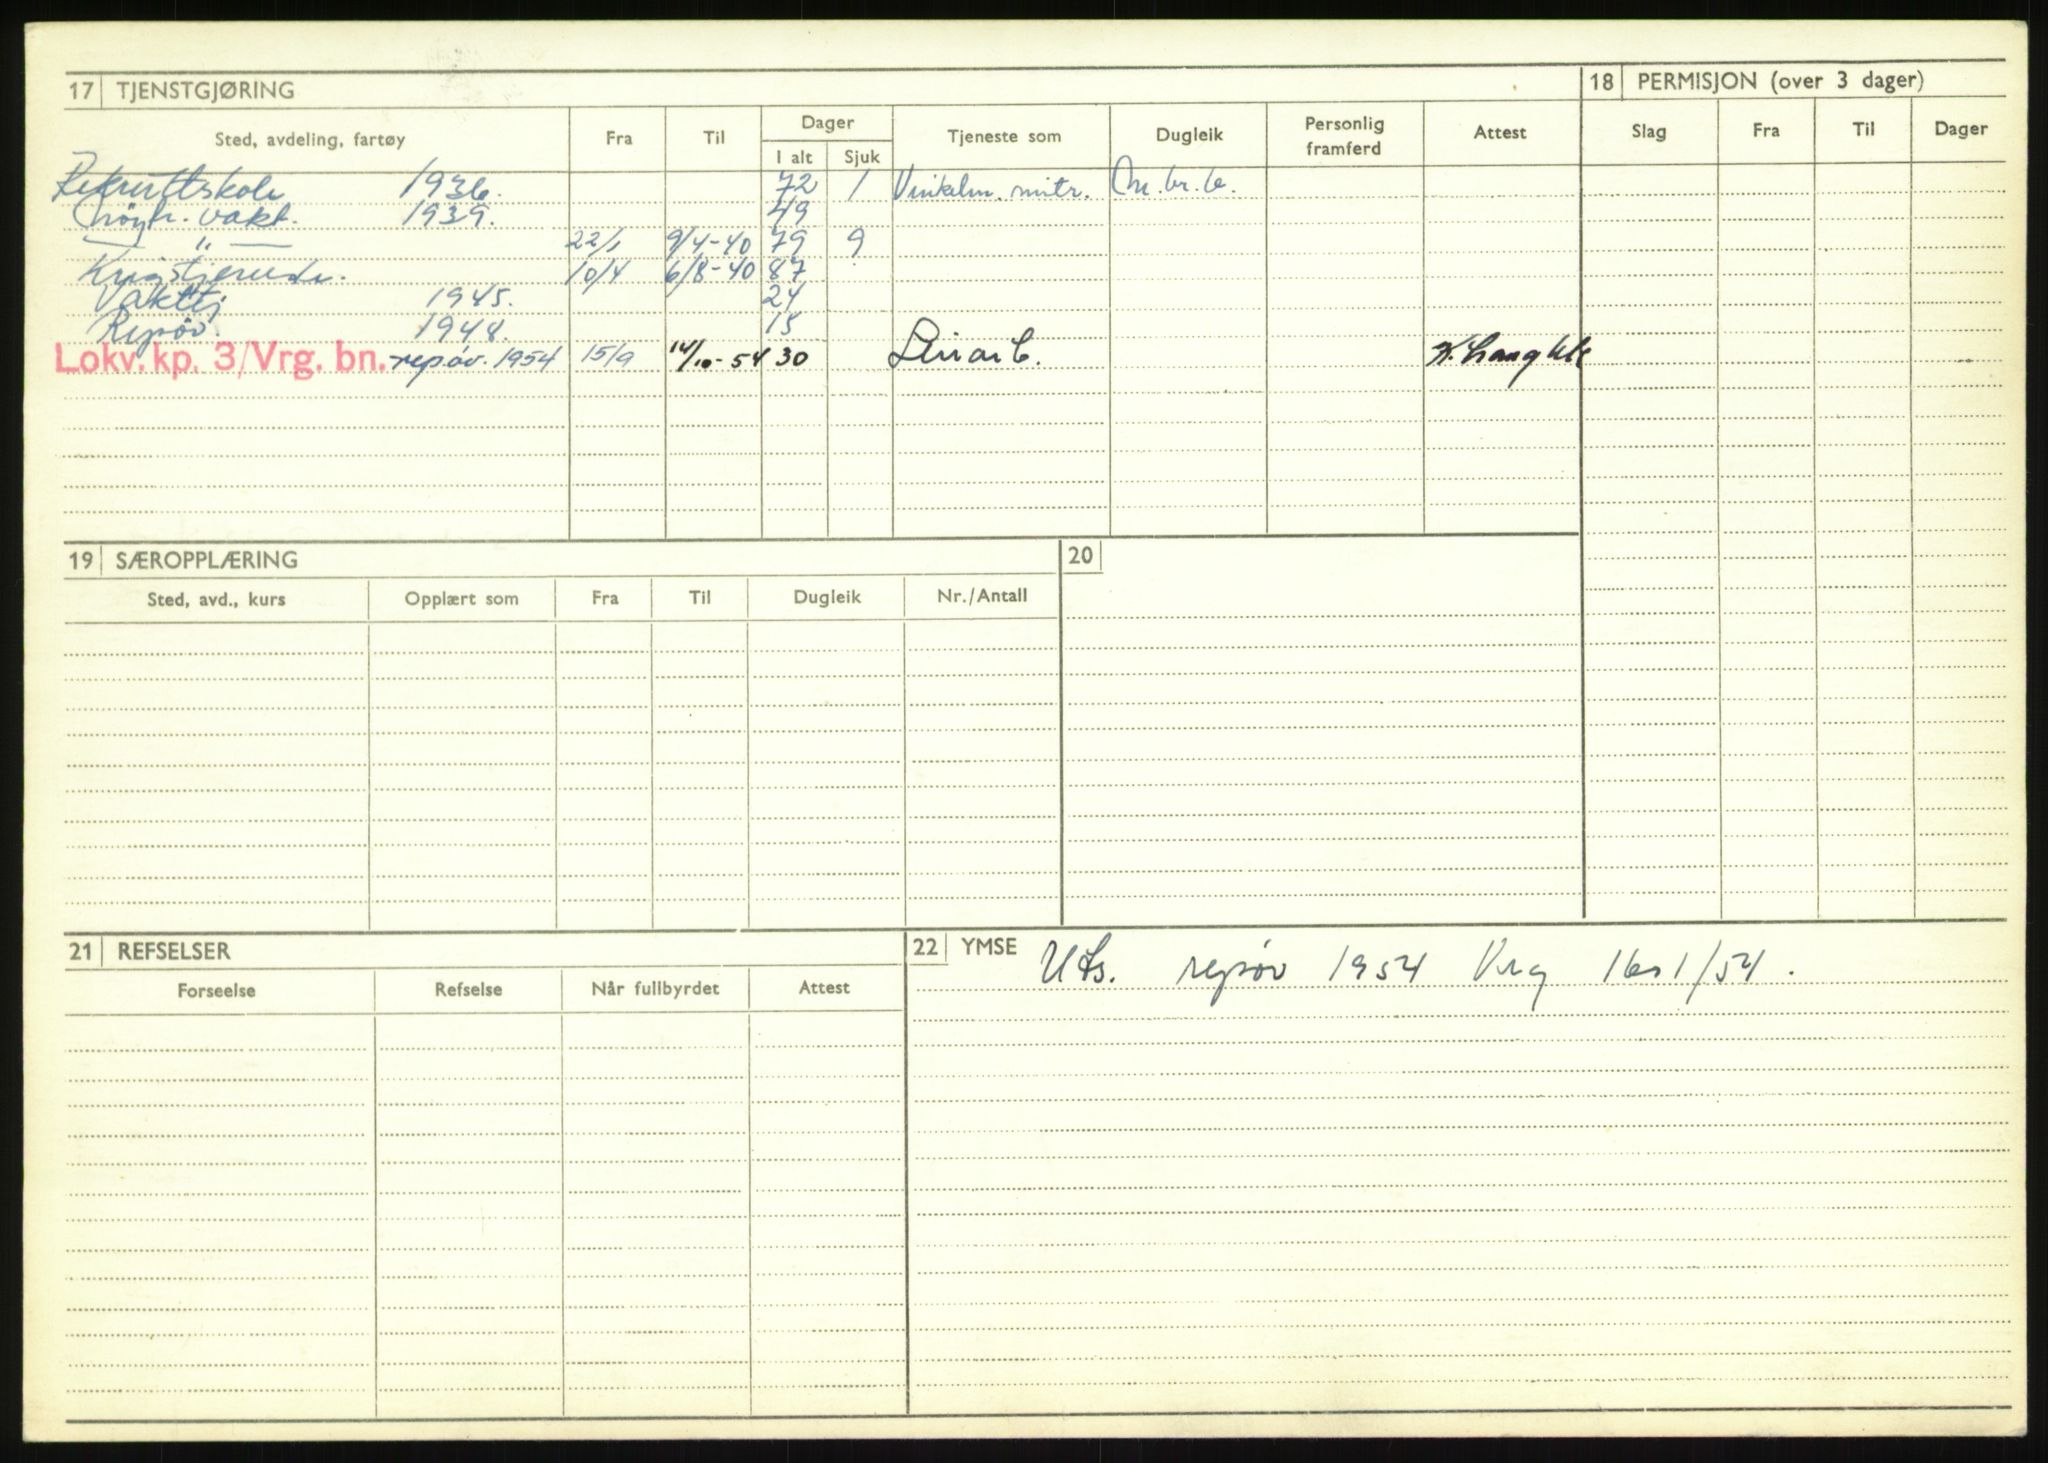 17 TJENSTGJØRING
18 PERMISJON (over 3 dager)
Sted, avdeling, fartøy Fra Til Dager Tjeneste som Dugleik Personlig framferd Attest Slag Fra Til Dager
I alt Sjuk
Rekruttskole 1936. 72 1 mitr. M.br.b.
Nøytr. vakt. 1939. 49
— " — 22/1 9/4-40 79 9
Krigstjeneste. 10/4 6/8-40 87
Vakttj 1945. 24
Repøv. 1948. 15
Lokv. kp. 3/Vrg. bn. repøv. 1954 15/9 14/10-54 30
19 SÆROPPLÆRING
20
Sted, avd., kurs Opplært som Fra Til Dugleik Nr./Antall
21 REFSELSER
Forseelse Refselse Når fullbyrdet Attest
22 YMSE Uts. repøv 1954 Vrg 1601/54.